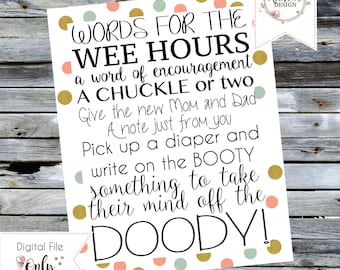 WORDS FOR THE
WEE HOURS
a word of encouragement
A CHUCKLE or two
Give the new Mom and Dad
A note just from you
Pick up a diaper and
write on the BOOTY
something to take
their mind off the
DOODY!
DESIGN
Digital File
Only